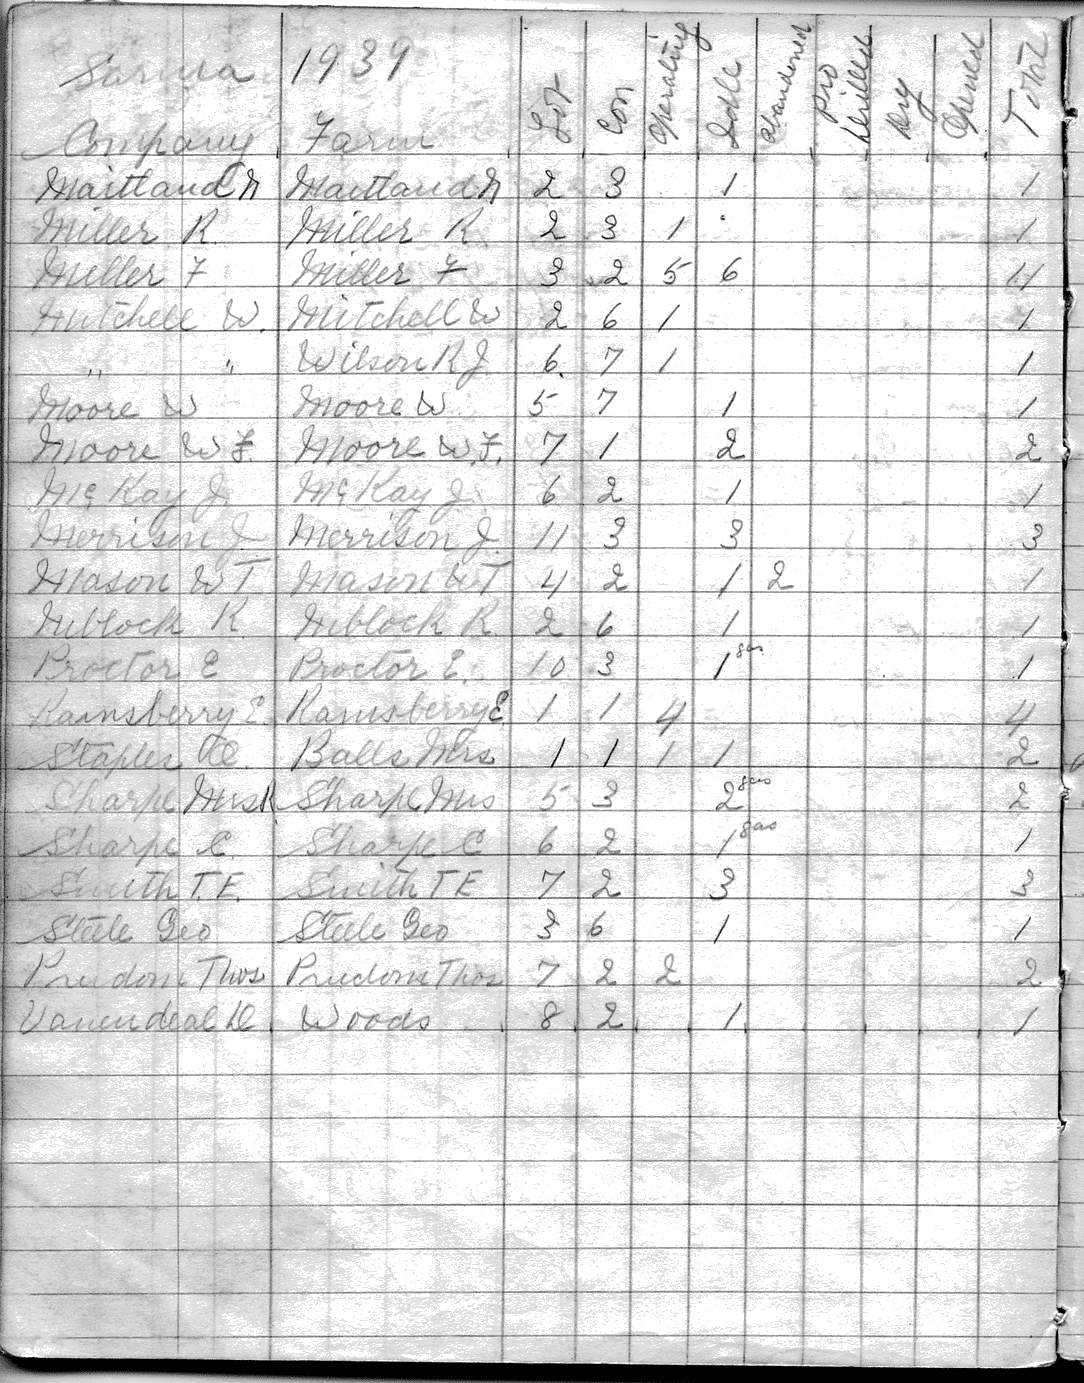 Sarnia 1939
Company Farm Lot Con Operating Idle Abandoned Pro Drilled Dry Opened Total
Maitland N Maitland N 2 3 1 1
Miller R. Miller R. 2 3 1 1
Miller F Miller F 3 2 5 6 11
Mitchell W. Mitchell W 2 6 1 1
" " Wilson R J 6. 7 1 1
Moore W Moore W. 5 7 1 1
Moore W F. Moore W.F. 7 1 2 2
McKay J. McKay J. 6 2 1 1
Morrison J. Morrison J. 11 3 3 3
Mason W T Mason W T 4 2 1 2 1
Niblock R Niblock R. 2 6 1 1
Proctor E Proctor E. 10 3 1 gas 1
Ramsberry E. Ramsberry E 1 1 4 4
Staples Balls Mrs 1 1 1 1 2
Sharpe Mrs R Sharpe Mrs 5 3 2 gas 2
Sharpe C. Sharpe C 6 2 1 gas 1
Smith T.E. Smith T E 7 2 3 3
Steele Geo Steele Geo 3 6 1 1
Prudom Thos Prudom Thos 7 2 2 2
Vanendeal D Woods 8 2 1 1